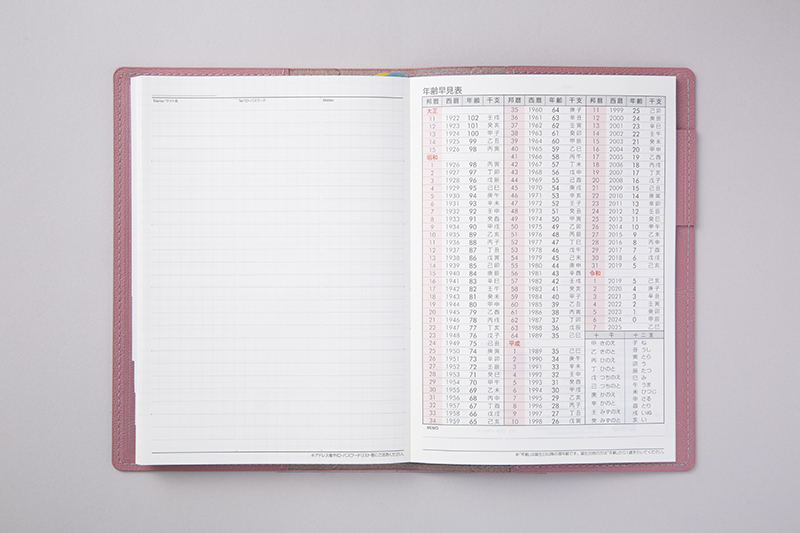 年齢早見表
邦暦 西暦 年齢 干支 邦暦 西暦 年齢 干支 邦暦 西暦 年齢 干支
大正 35 1960 64 庚子 11 1999 25 己卯
11 1922 102 壬戌 36 1961 63 辛丑 12 2000 24 庚辰
12 1923 101 癸亥 37 1962 62 壬寅 13 2001 23 辛巳
13 1924 100 甲子 38 1963 61 癸卯 14 2002 22 壬午
14 1925 99 乙丑 39 1964 60 甲辰 15 2003 21 癸未
15 1926 98 丙寅 40 1965 59 乙巳 16 2004 20 甲申
昭和 41 1966 58 丙午 17 2005 19 乙酉
1 1926 98 丙寅 42 1967 57 丁未 18 2006 18 丙戌
2 1927 97 丁卯 43 1968 56 戊申 19 2007 17 丁亥
3 1928 96 戊辰 44 1969 55 己酉 20 2008 16 戊子
4 1929 95 己巳 45 1970 54 庚戌 21 2009 15 己丑
5 1930 94 庚午 46 1971 53 辛亥 22 2010 14 庚寅
6 1931 93 辛未 47 1972 52 壬子 23 2011 13 辛卯
7 1932 92 壬申 48 1973 51 癸丑 24 2012 12 壬辰
8 1933 91 癸酉 49 1974 50 甲寅 25 2013 11 癸巳
9 1934 90 甲戌 50 1975 49 乙卯 26 2014 10 甲午
10 1935 89 乙亥 51 1976 48 丙辰 27 2015 9 乙未
11 1936 88 丙子 52 1977 47 丁巳 28 2016 8 丙申
12 1937 87 丁丑 53 1978 46 戊午 29 2017 7 丁酉
13 1938 86 戊寅 54 1979 45 己未 30 2018 6 戊戌
14 1939 85 己卯 55 1980 44 庚申 31 2019 5 己亥
15 1940 84 庚辰 56 1981 43 辛酉 令和
16 1941 83 辛巳 57 1982 42 壬戌 1 2019 5 己亥
17 1942 82 壬午 58 1983 41 癸亥 2 2020 4 庚子
18 1943 81 癸未 59 1984 40 甲子 3 2021 3 辛丑
19 1944 80 甲申 60 1985 39 乙丑 4 2022 2 壬寅
20 1945 79 乙酉 61 1986 38 丙寅 5 2023 1 癸卯
21 1946 78 丙戌 62 1987 37 丁卯 6 2024 0 甲辰
22 1947 77 丁亥 63 1988 36 戊辰 7 2025 乙巳
23 1948 76 戊子 64 1989 35 己巳 十干 十二支
24 1949 75 己丑 平成 甲 きのえ 子 ね
25 1950 74 庚寅 1 1989 35 己巳 乙 きのと 丑 うし
26 1951 73 辛卯 2 1990 34 庚午 丙 ひのえ 寅 とら
27 1952 72 壬辰 3 1991 33 辛未 丁 ひのと 卯 う
28 1953 71 癸巳 4 1992 32 壬申 戊 つちのえ 辰 たつ
29 1954 70 甲午 5 1993 31 癸酉 己 つちのと 巳 み
30 1955 69 乙未 6 1994 30 甲戌 庚 かのえ 午 うま
31 1956 68 丙申 7 1995 29 乙亥 辛 かのと 未 ひつじ
32 1957 67 丁酉 8 1996 28 丙子 壬 みずのえ 申 さる
33 1958 66 戊戌 9 1997 27 丁丑 癸 みずのと 酉 とり
34 1959 65 己亥 10 1998 26 戊寅 戌 いぬ
亥 い
MEMO